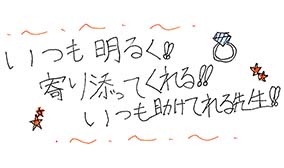 いつも明るく!!
寄り添ってくれる!!
いつも助けてれる先生!!